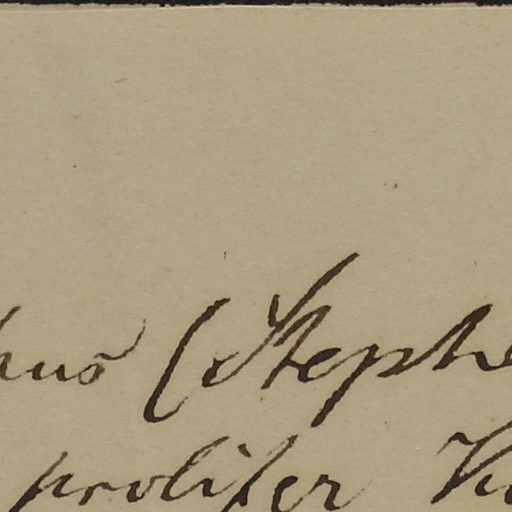 hus (Stephe
prolifer Vi